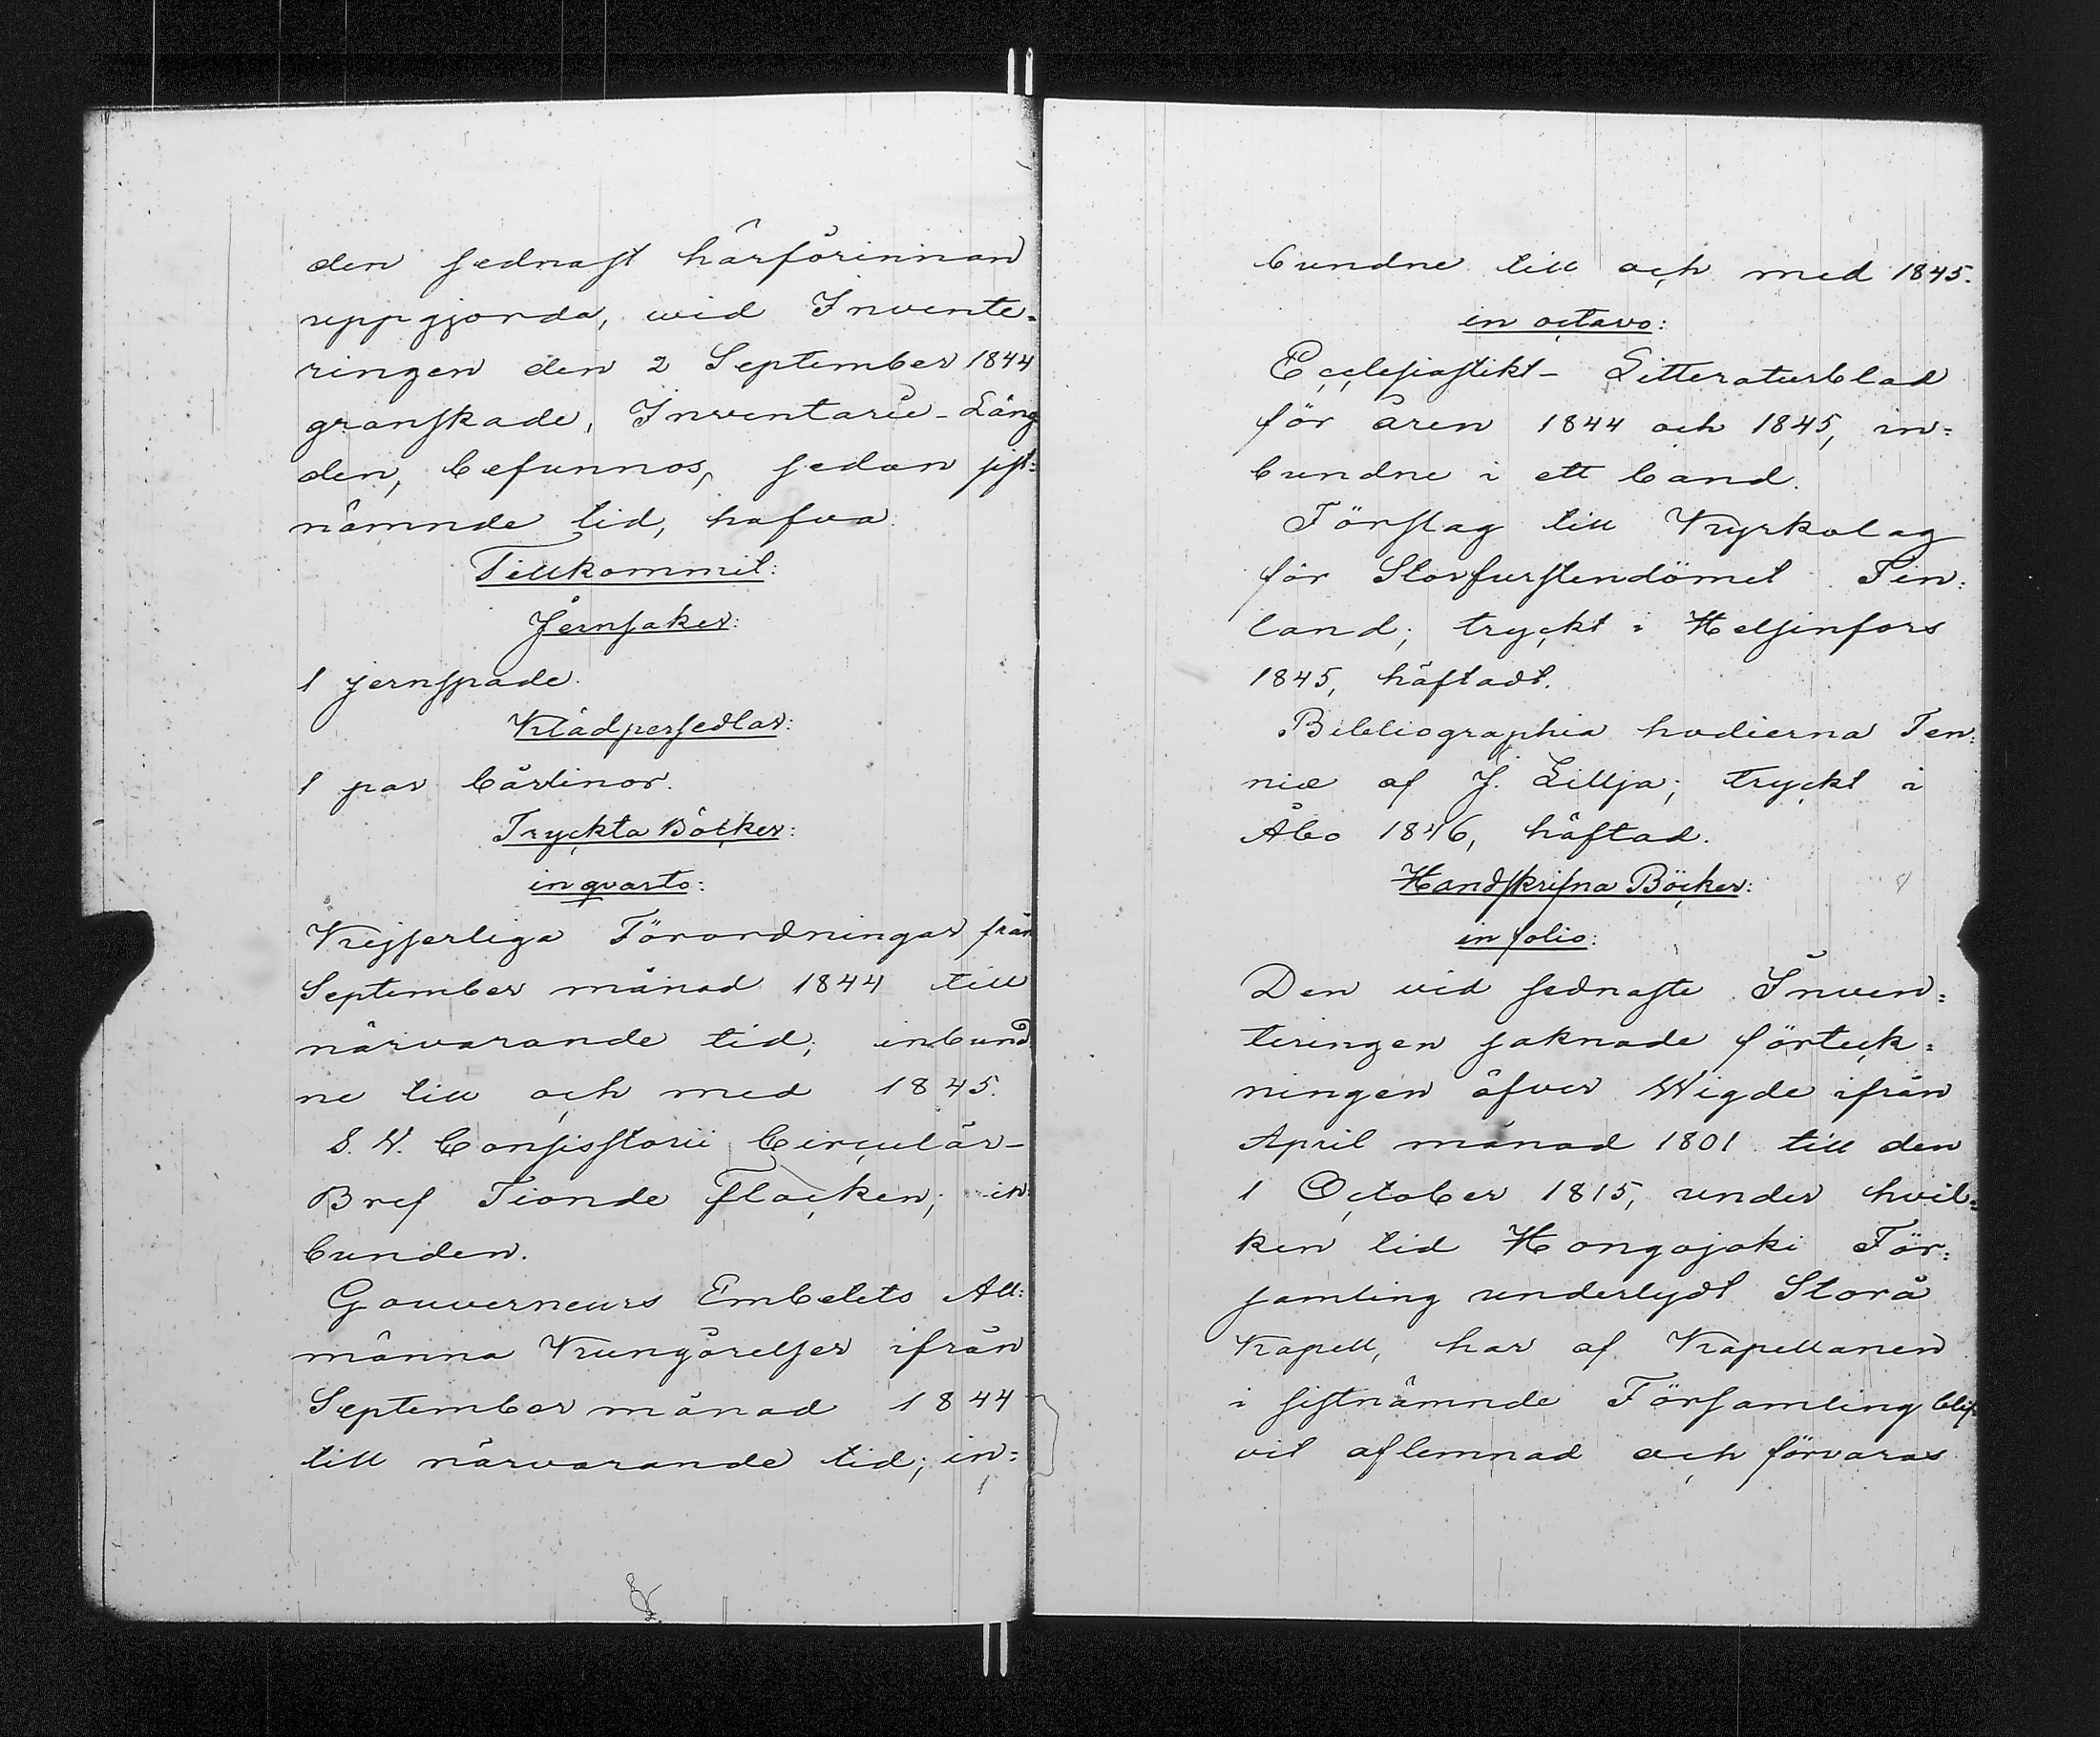 den sednast härförinnan
uppgjorda, wid Invente-
ringen den 2 September 1844
granskade, Inventarie-Läng
den, befunnos, sedan sist-
nämnde tid, hafva
Tillkommit:
Jernsaker:
1 jernspade.
Klädpersedlar:
1 par bårlinor.
Tryckta Böcker:
in qvarto:
Kejserliga Förordningar från
September månad 1844 till
närvarande tid; inbund-
ne till och med 1845.
S. V. Consisstorii Circulär-
Bref Tionde flocken; in-
bunden.
Gouverneurs Embetets All-
männa Kungörelser ifrån
September månad 1844
till närvarande tid; in-
bundne till och med 1845.
in octavo:
Ecclesiastikt- Litteraturblad
för åren 1844 och 1845, in-
bundne i ett band.
Förslag till Kyrkolag
för Storfurstendömet Fin-
land; tryckt i Helsinfors
1845, häftadt.
Bibliographia hodierna Fen-
niæ af J. Lillja; tryckt i
Åbo 1846, häftad.
Handskrifna Böcker:
in folio:
Den vid sednaste Inven-
teringen saknade förteck-
ningen öfver Wigde ifrån
April månad 1801 till den
1 October 1815, under hvil-
ken tid Hongojoki För-
samling underlydt Storå
Kapell, har af Kapellanen
i sistnämnde Församling blif-
vit aflemnad och förvaras